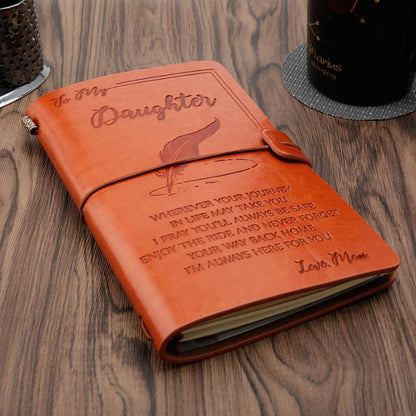 To My
Daughter
WHEREVER YOUR JOURNEY
IN LIFE MAY TAKE YOU
I PRAY YOU'LL ALWAYS BE SAFE
ENJOY THE RIDE AND NEVER FORGET
YOUR WAY BACK HOME
I'M ALWAYS HERE FOR YOU
Love, Mom